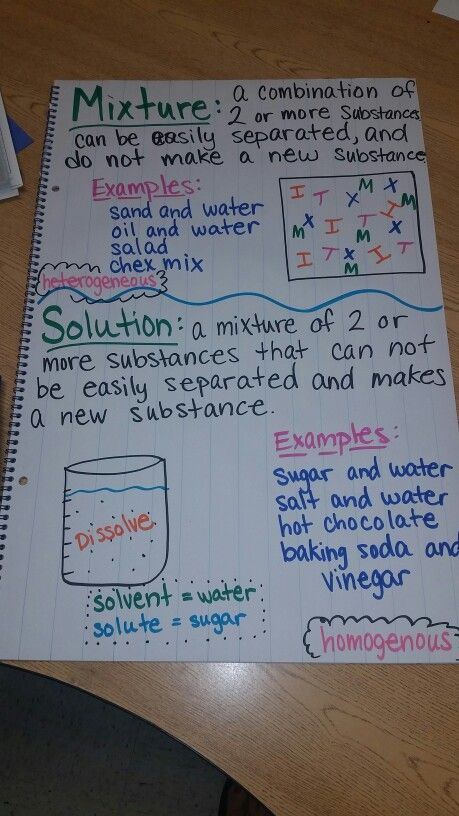 Mixture: a combination of
2 or more substances
can be easily separated, and
do not make a new substance
Examples:
sand and water
oil and water
salad
chex mix
heterogeneous
I T X M X
M X I T I M
I T X I T
M
Solution: a mixture of 2 or
more substances that can not
be easily separated and makes
a new substance.
Examples:
sugar and water
salt and water
hot chocolate
baking soda and
vinegar
Dissolve
solvent = water
solute = sugar
homogenous